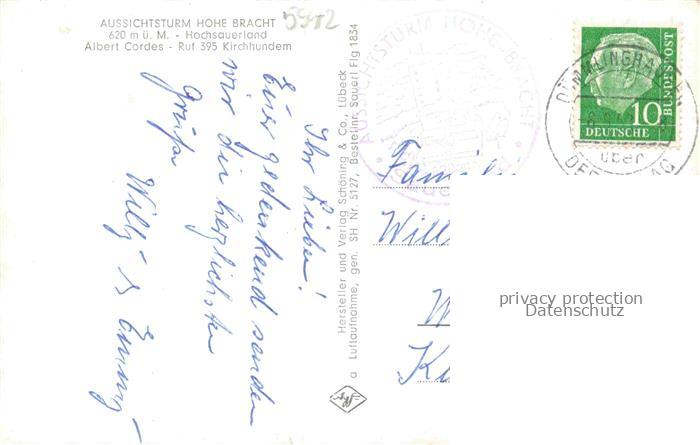 AUSSICHTSTURM HOHE BRACHT
620 m ü. M. - Hochsauerland
Albert Cordes - Ruf 395 Kirchhundem
5912
Ihr Lieben!
Eurer gedenkend senden
wir die herzlichsten
Grüße
Willy & Emmy
Hersteller und Verlag Schöning & Co., Lübeck
a Luftaufnahme, gen. SH Nr. 5127, Bestellnr. Sauerl Flg 1834
AUSSICHTSTURM HOHE-BRACHT
10
DEUTSCHE
BUNDESPOST
über
Famil
Will
W
Ki
privacy protection
Datenschutz